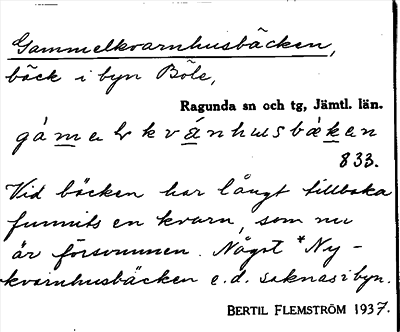 Gammelkvarnhusbäcken,
bäck i byn Böle,
Ragunda sn och tg, Jämtl. län.
833.
Vid bäcken har långt tillbaka
funnits en kvarn, som nu
är försvunnen. Något *Ny-
kvarnhusbäcken e.d. saknas i byn.
BERTIL FLEMSTRÖM 1937.